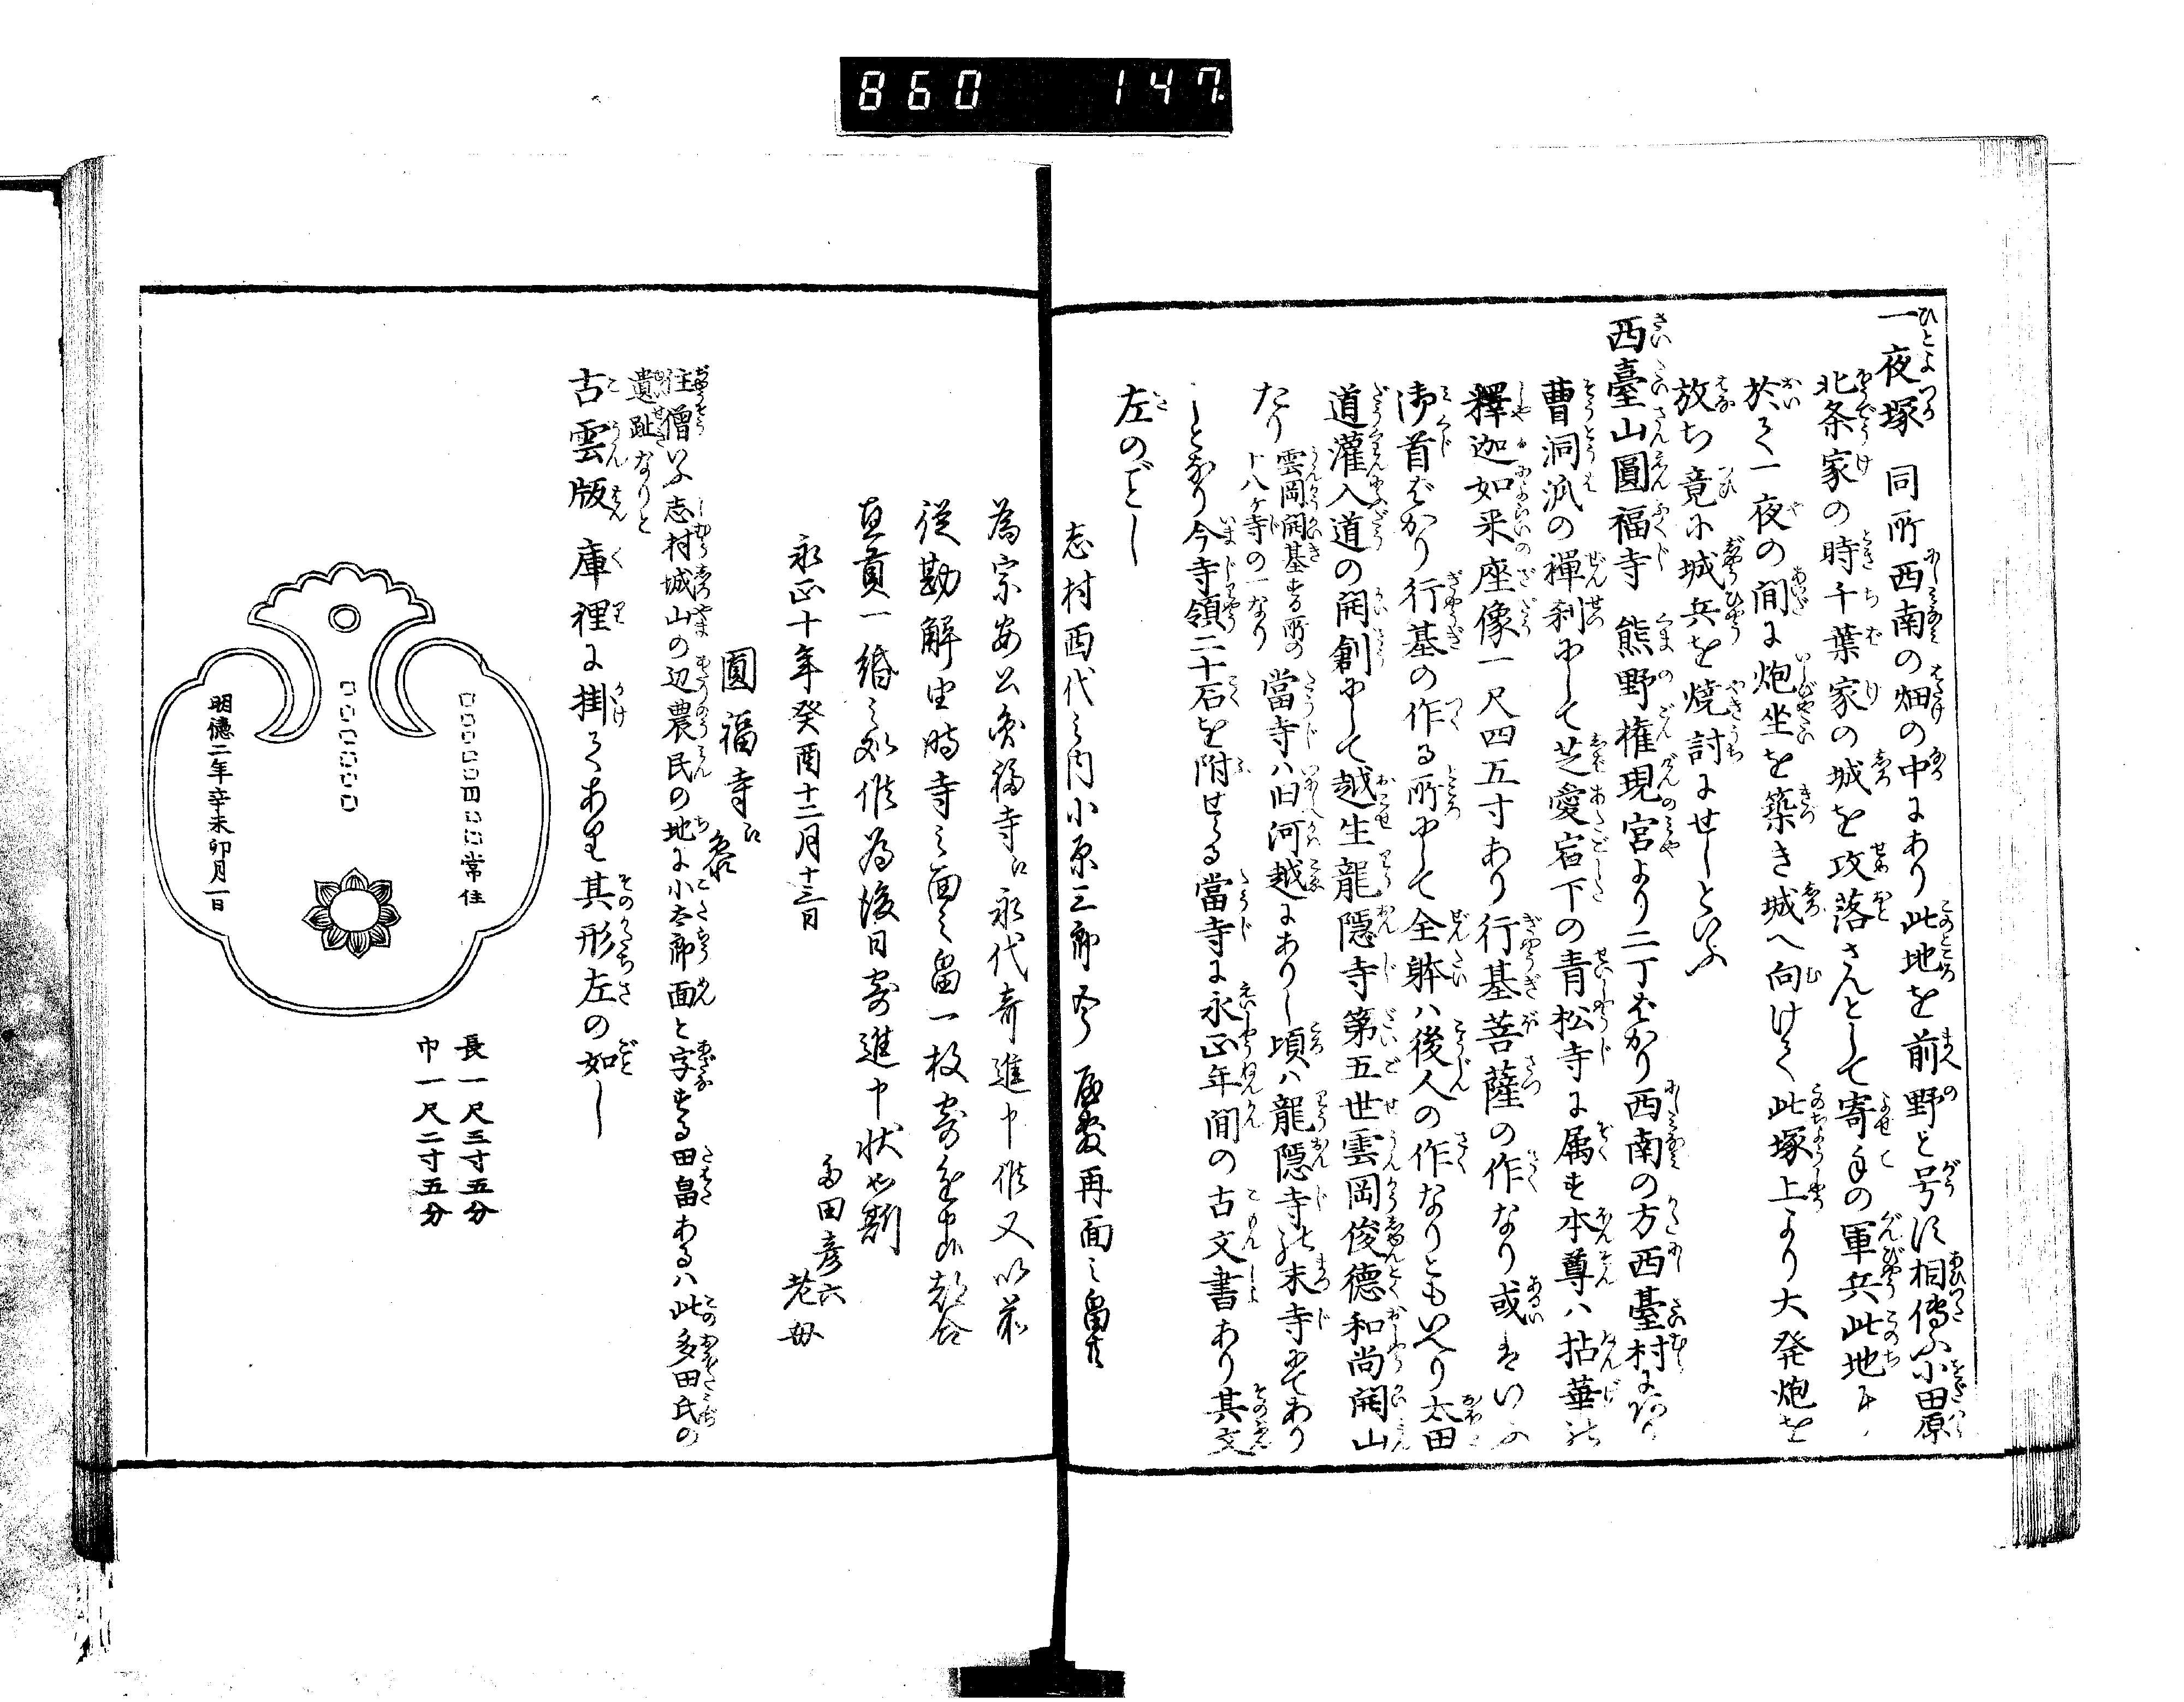 860 147
一夜塚 同所西南の畑の中にあり此地を前野と号す相傳ふ小田原
北条家の時千葉家の城を攻落さんとして寄手の軍兵此地に
於て一夜の間に炮坐を築き城へ向けて此塚上より大発炮を
放ち竟に城兵を焼討にせしといふ
西臺山圓福寺 熊野権現宮より二丁ばかり西南の方西臺村にあり
曹洞派の禪刹にして芝愛宕下の青松寺に属す本尊ハ拈華の
釋迦如来座像一尺四五寸あり行基菩薩の作なり或はいふ
御首ばかり行基の作る所にして全躰ハ後人の作なりともいへり太田
道灌入道の開創にして越生龍隠寺第五世雲岡俊徳和尚開山
たり 雲岡開基する所の十八ケ寺の一なり 當寺ハ旧河越にありし頃ハ龍隠寺の末寺にてあり
しとなり今寺領二十石を附せらる當寺に永正年間の古文書あり其文
左のごとし
志村西代之内小原三郎 再面之畠
為宗安公円福寺江永代寄進申候又以前
従勘解由時寺之面之畠一枚寄進申
直貢一緡之処候為後日寄進申状如斯
永正十年癸酉十二月十三日 多田彦六
老母
圓福寺江
参
住僧いふ志村城山の辺農民の地に小太郎面と字する田畠あるハ此多田氏の
遺趾なりと
古雲版 庫裡に掛てあり其形左の如し
□□□□□四□□常住
□□□□□□
明徳二年辛未卯月一日
長一尺三寸五分
巾一尺二寸五分